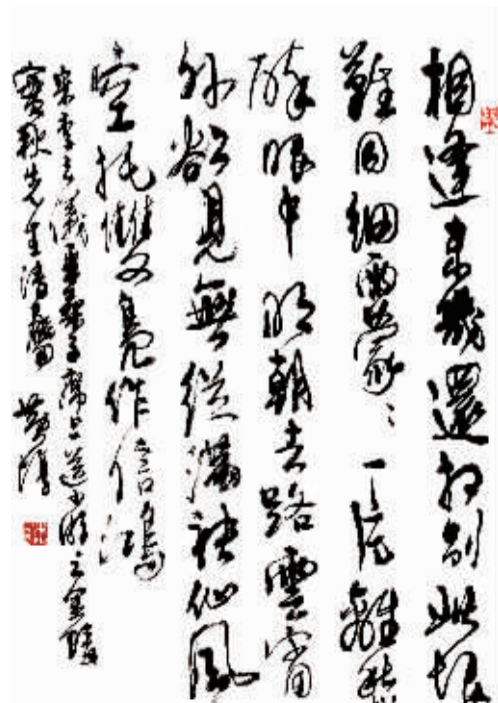 相逢未幾還相別此恨
難同細雨濛々一片離愁
醉眼中明朝去路雲霄
外欲見無從滿袂仙風
空托雙鳧作信鴻
宋李之儀采桑子席上送少游之金陵
秋先生清屬